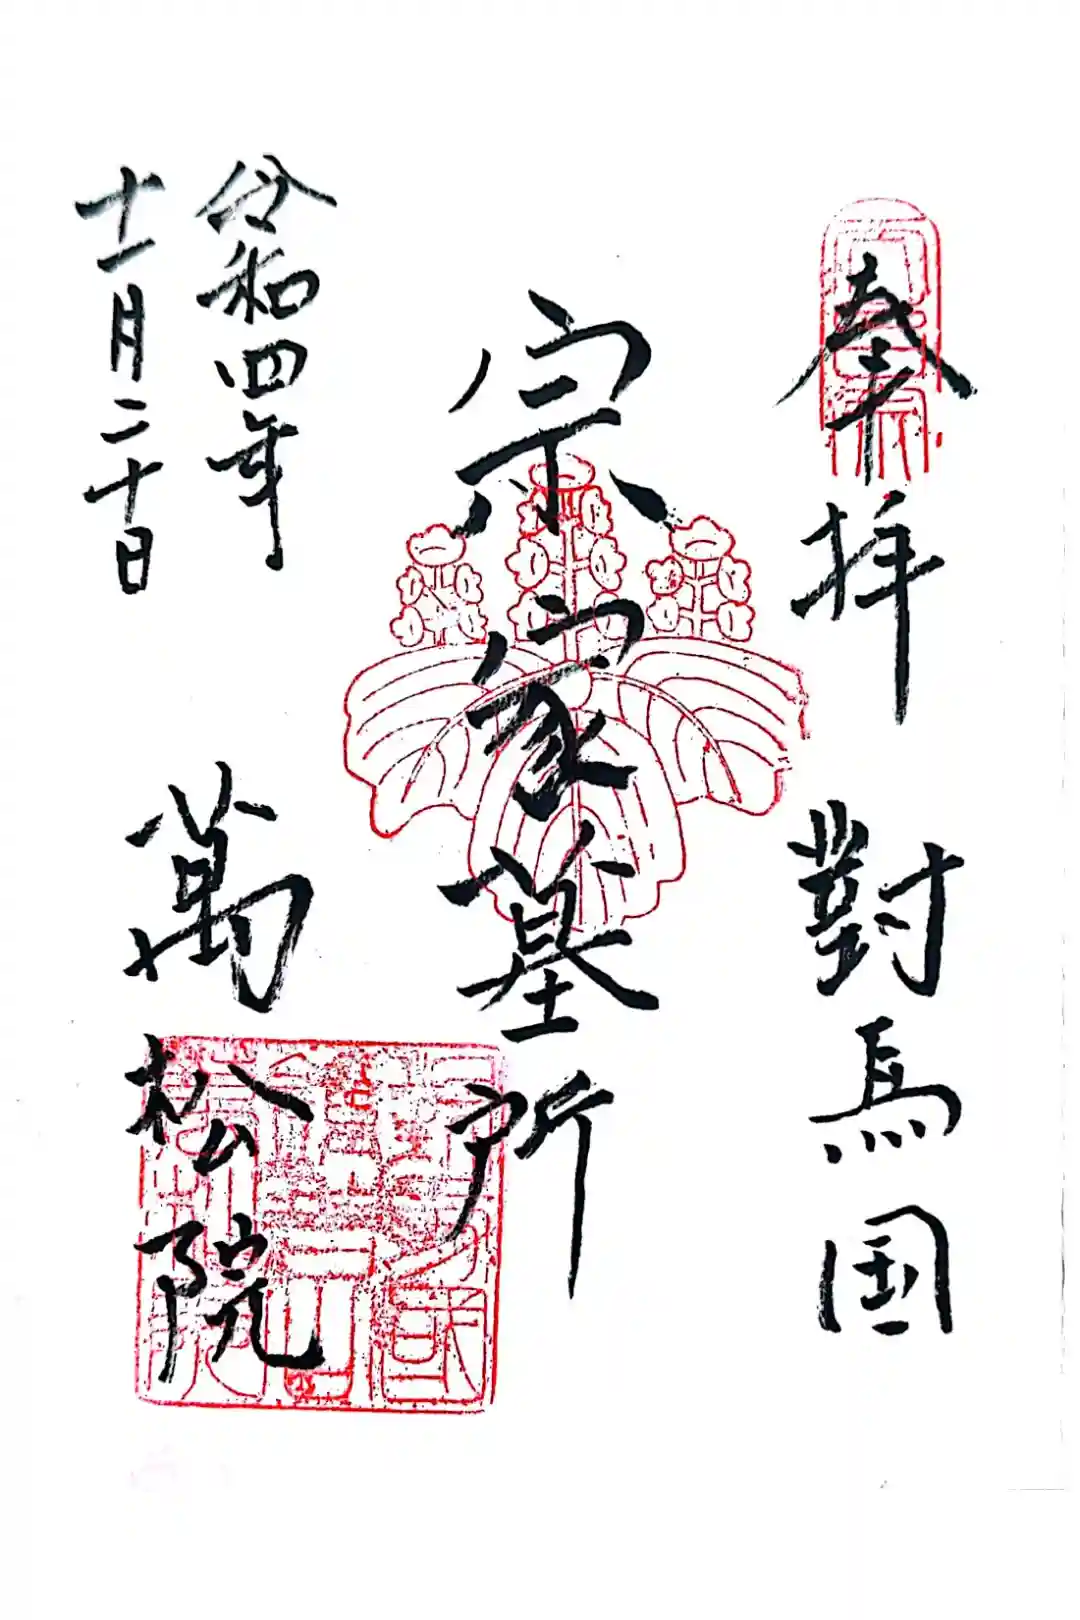 奉拝　對馬国
宗家墓所
令和四年
十一月二十日
萬松院